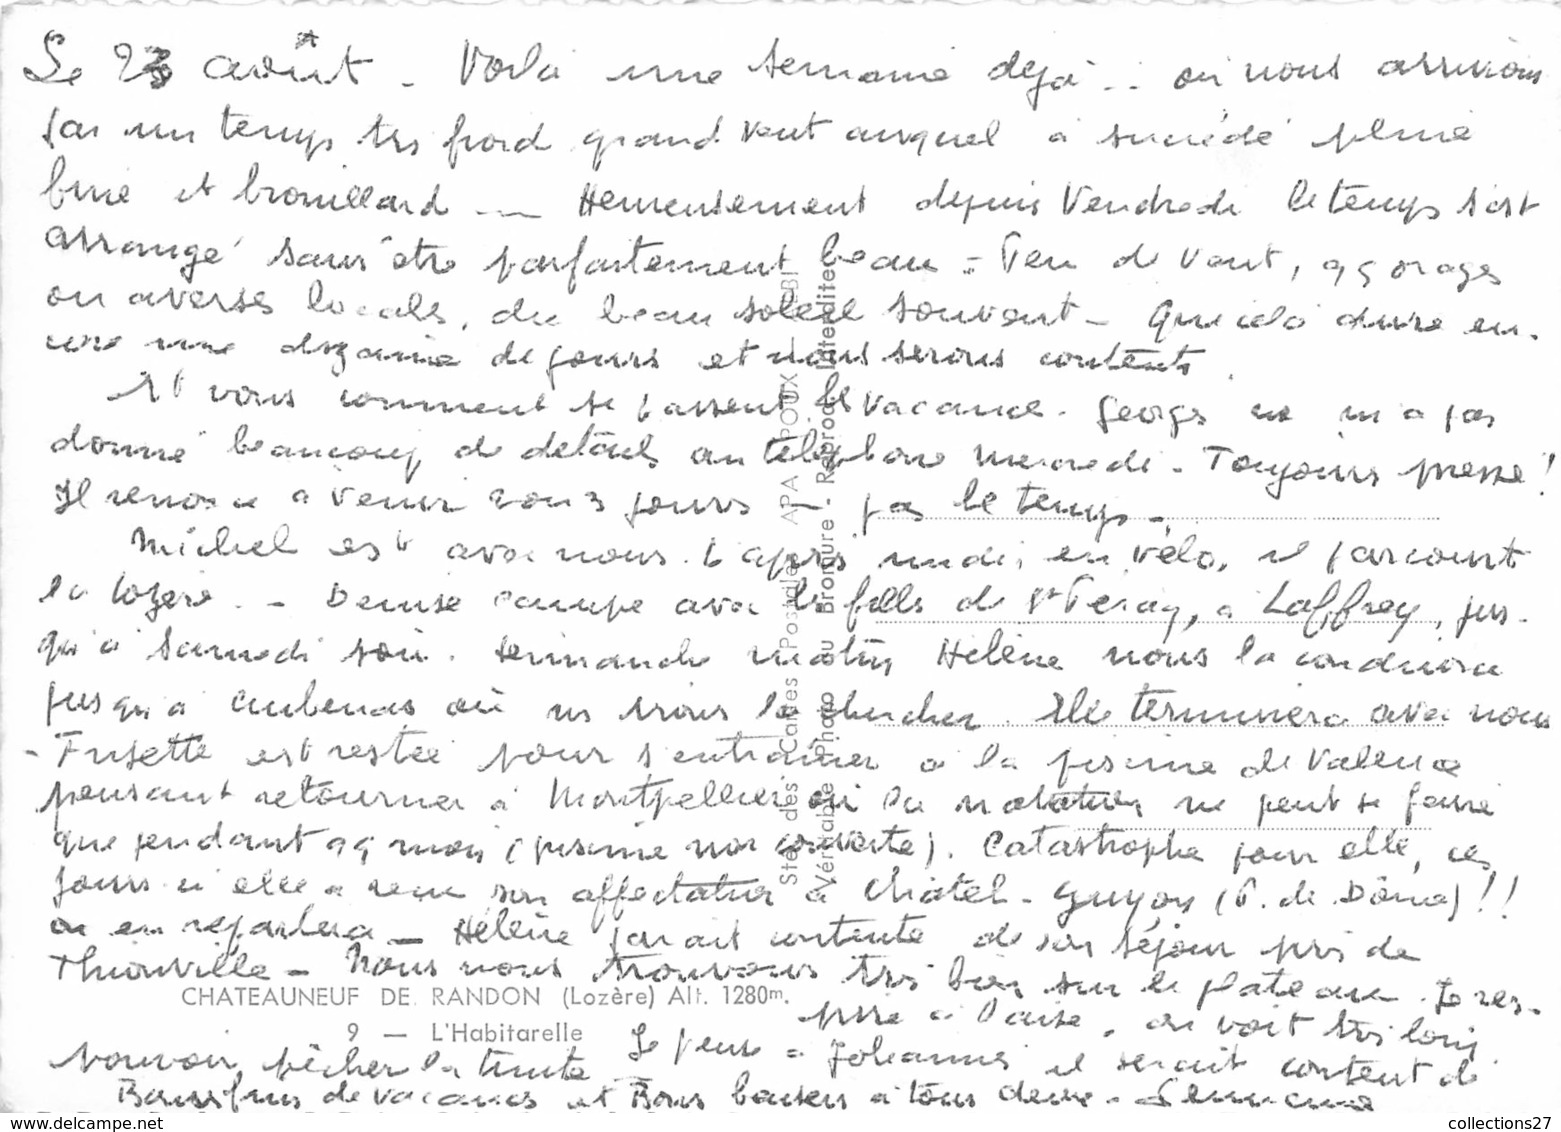 Le 23 août - Voilà une semaine déjà... où nous arrivions
par un temps très froid grand vent auquel a succédé pluie
bruie et brouillard -- Heureusement depuis Vendredi le temps s'est
arrangé sans être parfaitement beau - Peu de vent, qq orages
ou averses locales, du beau soleil souvent - Que cela dure en-
core une dizaine de jours et nous serons contents.
Et vous comment se passent les vacances. Georges ne m'a pas
donné beaucoup de détails au téléphone mercredi - Toujours pressé !
Il renonce à venir nous 3 jours - pas le temps -
Michel est avec nous. L'après midi, en vélo, il parcourt
la Lozère. - Denise campe avec les filles de St Peray, à Laffrey, jus-
qu'à samedi soir. dimanche matin Hélène nous la conduira
jusqu'à Aubenas où ns irons la chercher. Elle terminera avec nous
- Frisette est restée pour s'entraîner à la piscine de Valence
pensant retourner à Montpellier où la natation ne peut se faire
que pendant qq mois (piscine non couverte). Catastrophe pour elle, ces
jours-ci elle a reçu son affectation à Châtel-Guyon (P. de Dôme) !!
on en reparlera - Hélène parait contente de son séjour près de
Thionville - Nous nous trouvons très bien sur le plateau. Je res-
pire à l'aise, on voit très loin.
Je pense à Johannès il serait content de
pouvoir pêcher la truite
Bonnes fins de vacances et Bons baisers à tous deux -
CHATEAUNEUF DE RANDON (Lozère) Alt. 1280m.
9 — L'Habitarelle
Sté des Cartes Postales APA POUX - ALBI
Véritable Photo au Bromure - Reprod. Interdite
collections27
www.delcampe.net